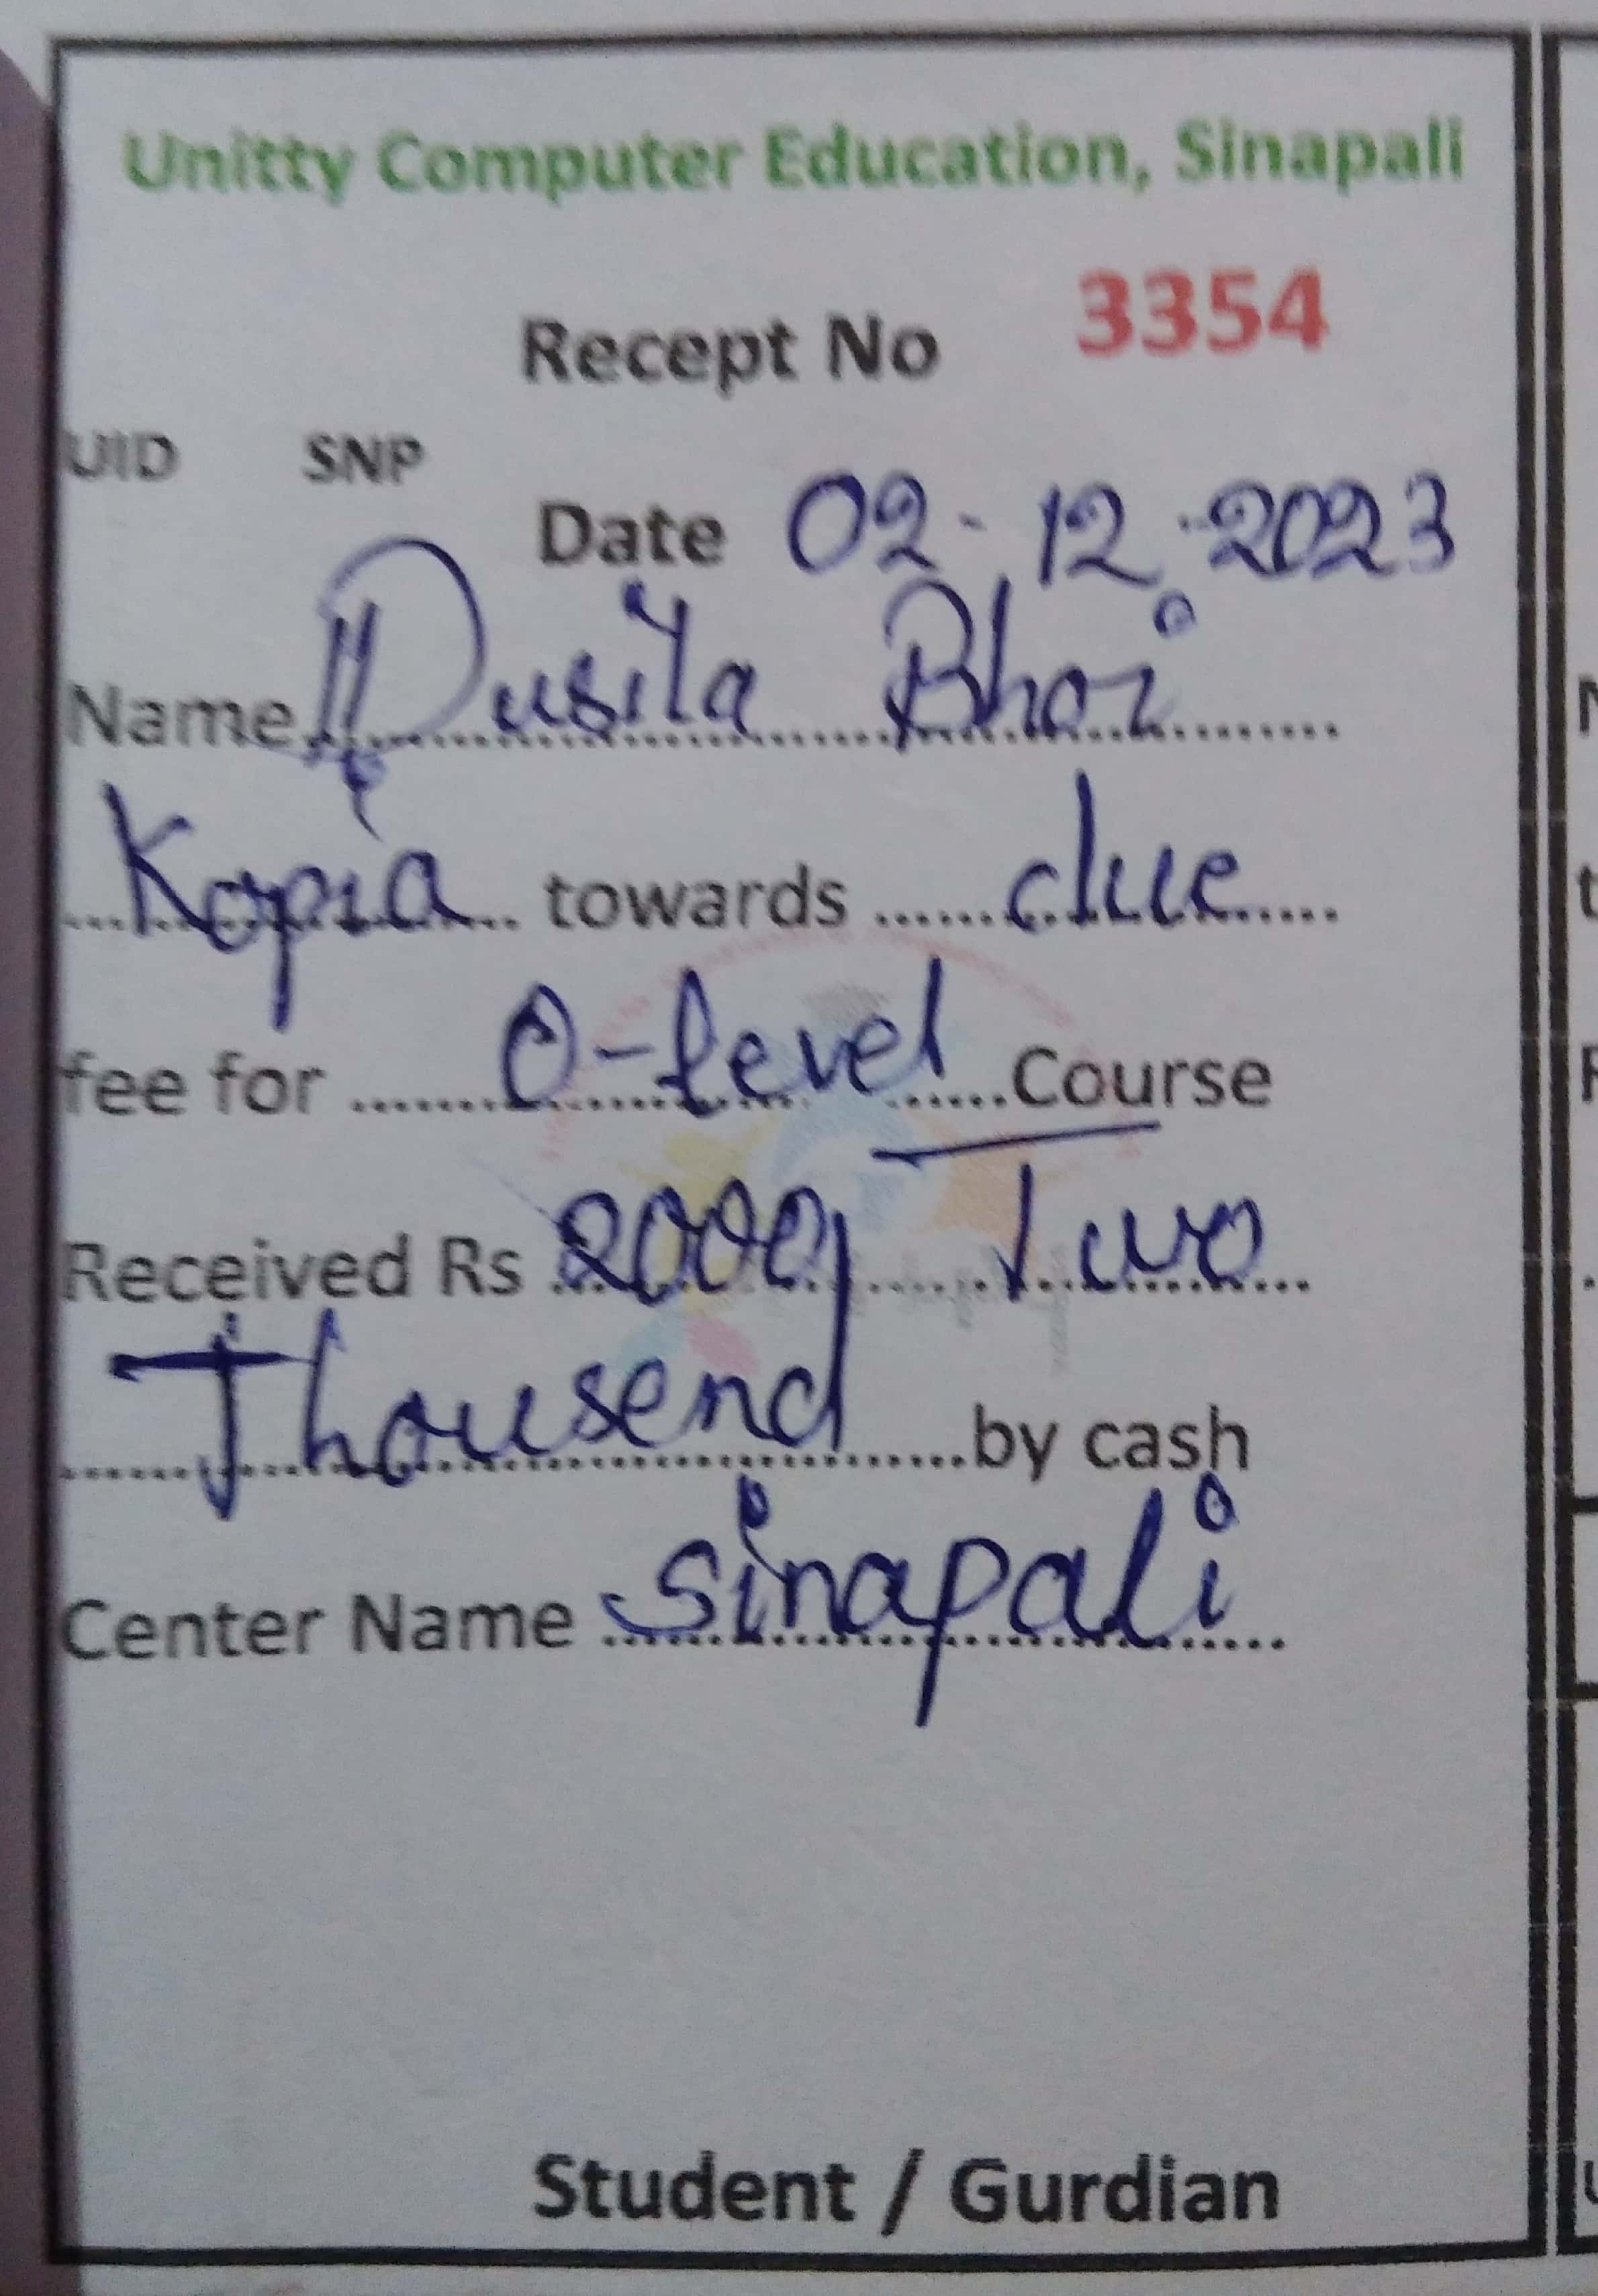 Unitty Computer Education, Sinapali
Recept No 3354
UID SNP
Date 02-12-2023
Name Dusila Bhoi
Kopia towards due
fee for O-level Course
Received Rs 2000/ Two
Thousend by cash
Center Name Sinapali
Student / Gurdian